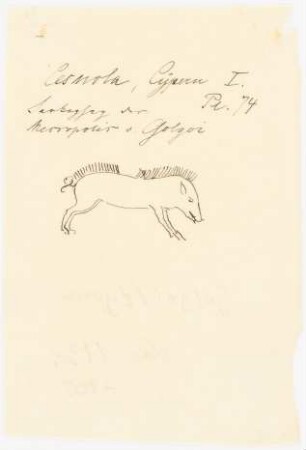 Cesnola, Cypern I.
Sarkophag der Pl. 74
Necropolis v. Golgoi